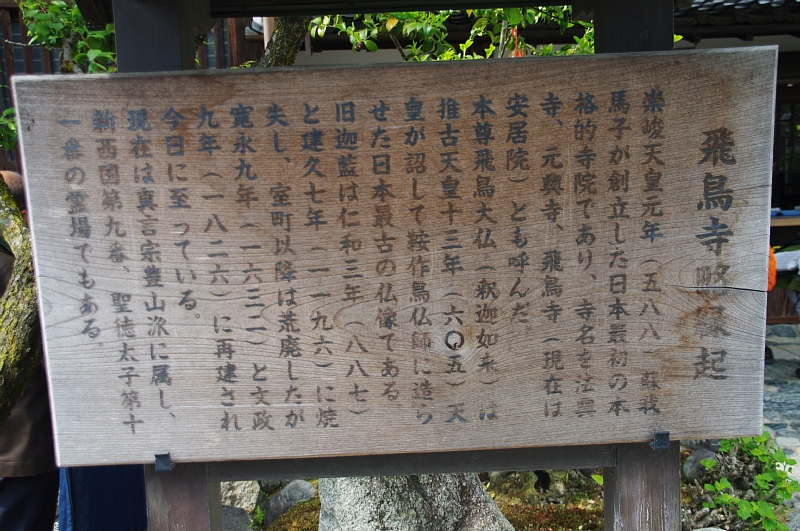 飛鳥寺略縁起
崇峻天皇元年(五八八)蘇我
馬子が創立した日本最初の本
格的寺院であり、寺名を法興
寺、元興寺、飛鳥寺(現在は
安居院)とも呼んだ。
本尊飛鳥大仏(釈迦如来)は
推古天皇十三年(六〇五)天
皇が詔して鞍作鳥仏師に造ら
せた日本最古の仏像である
旧迦藍は仁和三年(八八七)
と建久七年(一一九六)に焼
失し、室町以降は荒廃したが
寛永九年(一六三二)と文政
九年(一八二六)に再建され
今日に至っている。
現在は真言宗豊山派に属し、
新西国第九番、聖徳太子第十
一番の霊場でもある。